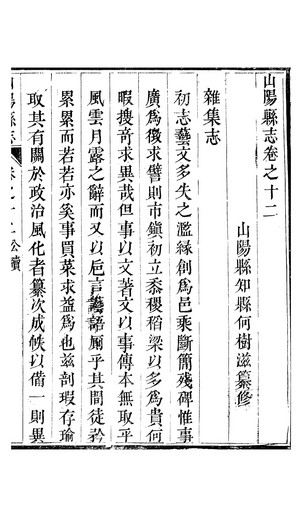 山陽縣志卷之十二
山陽縣知縣何樹滋纂修
雜集志
初志藝文多失之濫緣創爲邑乘斷簡殘碑惟事
廣爲徵求譬則市鎮初立黍稷稻粱以多爲貴何
暇搜奇求異哉但事以文著文以事傳本無取乎
風雲月露之辭而又以巵言讕語厠乎其間徒矜
累累而若若亦奚事買菜求益爲也茲剖瑕存瑜
取其有關於政治風化者纂次成帙以備一則異
山陽縣志
卷之十二公牘